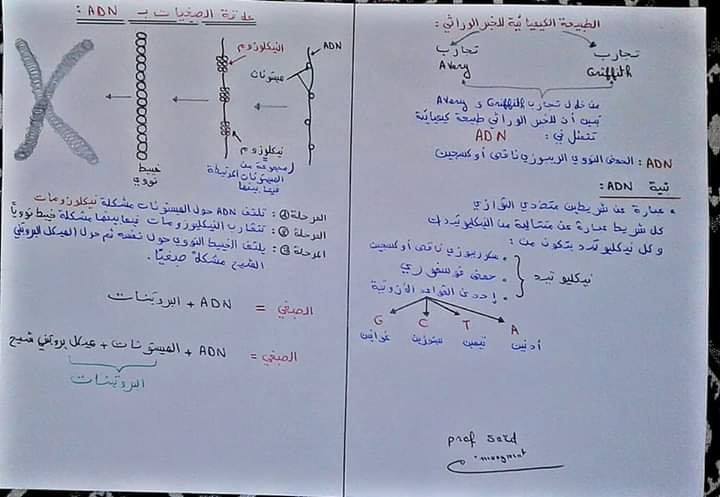 الطبيعة الكيميائية للخبر الوراثي:
تجارب Griffith
تجارب Avery
من خلال تجارب Griffith و Avery
تبين أن للخبر الوراثي طبيعة كيميائية
تتمثل في: ADN
ADN: الحمض النووي الريبوزي ناقص أوكسجين
بنية ADN:
عبارة عن شريطين متعددي التوازي
كل شريط عبارة عن متتالية من النيكليوتيدات
وكل نيكليوتيد يتكون من:
نيكليوتيد
سكر ريبوزي ناقص أوكسجين
حمض فوسفوري
إحدى القواعد الأزوتية
A T C G
أدنين تيمين سيتوزين غوانين
prof said
علاقة الصبغيات بـ ADN:
ADN
هيستونات
النيكلوزوم
نيكلوزوم
مجموعة من
الهيستونات المرتبطة
فيما بينها
خييط
نووي
المرحلة 1: تلتف ADN حول الهيستونات مشكلة نيكلوزومات
المرحلة 2: تتقارب النيكلوزومات فيما بينها مشكلة خييط نوويا
المرحلة 3: يلتف الخييط النووي حول نفسه ثم حول الهيكل البروتيني
الشيح مشكلة صبغيا.
الصبغي = ADN + البروتينات
الصبغي = ADN + الهيستونات + هيكل بروتيني شيح
البروتينات